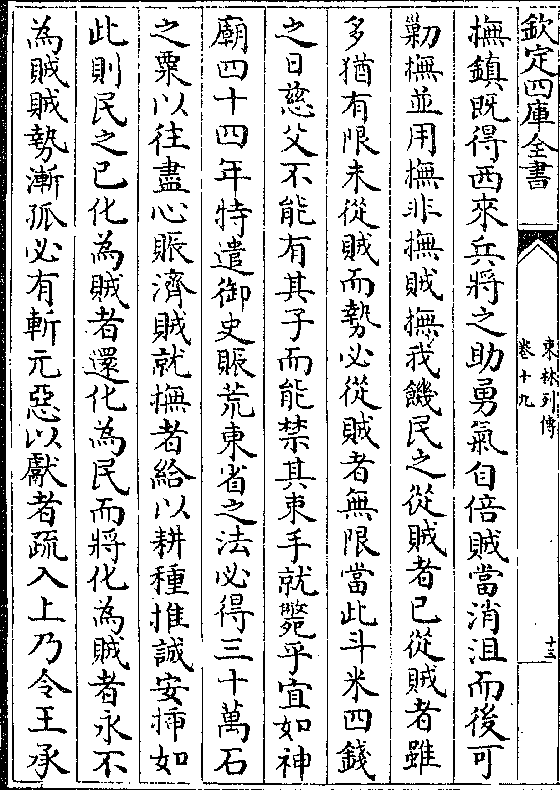 欽定四庫全書
東林列傳
卷十九
十三
撫鎮既得西來兵將之助勇氣自倍賊當消沮而後可
勦撫並用撫非撫賊撫我饑民之從賊者已從賊者雖
多猶有限未從賊而勢必從賊者無限當此斗米四錢
之日慈父不能有其子而能禁其束手就斃乎宜如神
廟四十四年特遣御史賑荒東省之法必得三十萬石
之粟以往盡心賑濟賊就撫者給以耕種推誠安揷如
此則民之已化為賊者還化為民而將化為賊者永不
為賊賊勢漸孤必有斬元惡以獻者疏入上乃令王承